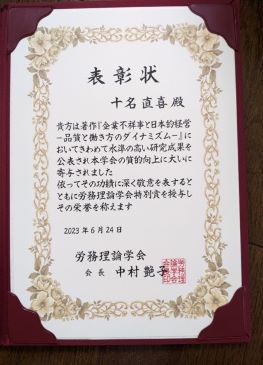 表彰状
十名直喜 殿
貴方は著作『企業不祥事と日本的経営
－品質と働き方のダイナミズム－』に
おいてきわめて水準の高い研究成果を
公表され本学会の質的向上に大いに
寄与されました
依ってその功績に深く敬意を表すると
ともに労務理論学会特別賞を授与し
その栄誉を称えます
2023年6月24日
労務理論学会
会長 中村艶子